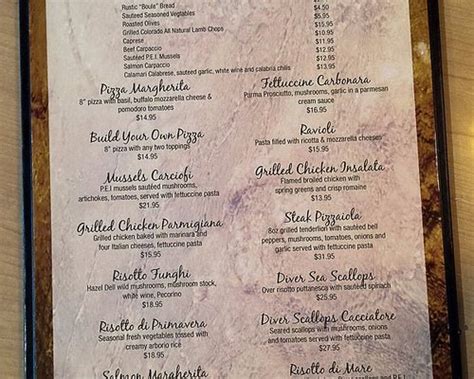 Rustic "Boule" Bread
Sauteed Seasoned Vegtables $4.50
Roasted Olives $5.95
Grilled Colorado All Natural Lamb Chops
Caprese $11.95
Beef Carpaccio $12.95
Sautéed P.E.I. Mussels $12.95
Salmon Carpaccio $12.95
Calamari Calabrese, sauteed garlic, white wine and calabria chilis $13.95
Pizza Margherita
8" pizza with basil, buffalo mozzarella cheese &
pomodoro tomatoes
$14.95
Build Your Own Pizza
8" pizza with any two toppings
$14.95
Mussels Carciofi
P.E.I mussels sautéed mushrooms,
artichokes, tomatoes, served with fettuccine pasta
$21.95
Grilled Chicken Parmigiana
Grilled chicken baked with marinara and
four Italian cheeses, fettuccine pasta
$15.95
Risotto Funghi
Hazel Dell wild mushrooms, mushroom stock,
white wine, Pecorino
$18.95
Risotto di Primavera
Seasonal fresh vegetables tossed with
creamy arborio rice
$18.95
Salmon Margherita
Fettuccine Carbonara
Parma Prosciutto, mushrooms, garlic in a parmesan
cream sauce
$16.95
Ravioli
Pasta filled with ricotta & mozzarella cheeses
$15.95
Grilled Chicken Insalata
Flamed broiled chicken with
spring greens and crisp romaine
$13.95
Steak Pizzaiola
8oz grilled tenderlion with sautéed bell
peppers, mushrooms, tomatoes, onions and
garlic served with fettuccine pasta
$31.95
Diver Sea Scallops
Over risotto puttanesca with sautéed spinach
$25.95
Diver Scallops Cacciatore
Seared scallops with mushrooms, onions
and tomatoes served with fettuccine pasta
$27.95
Risotto di Mare